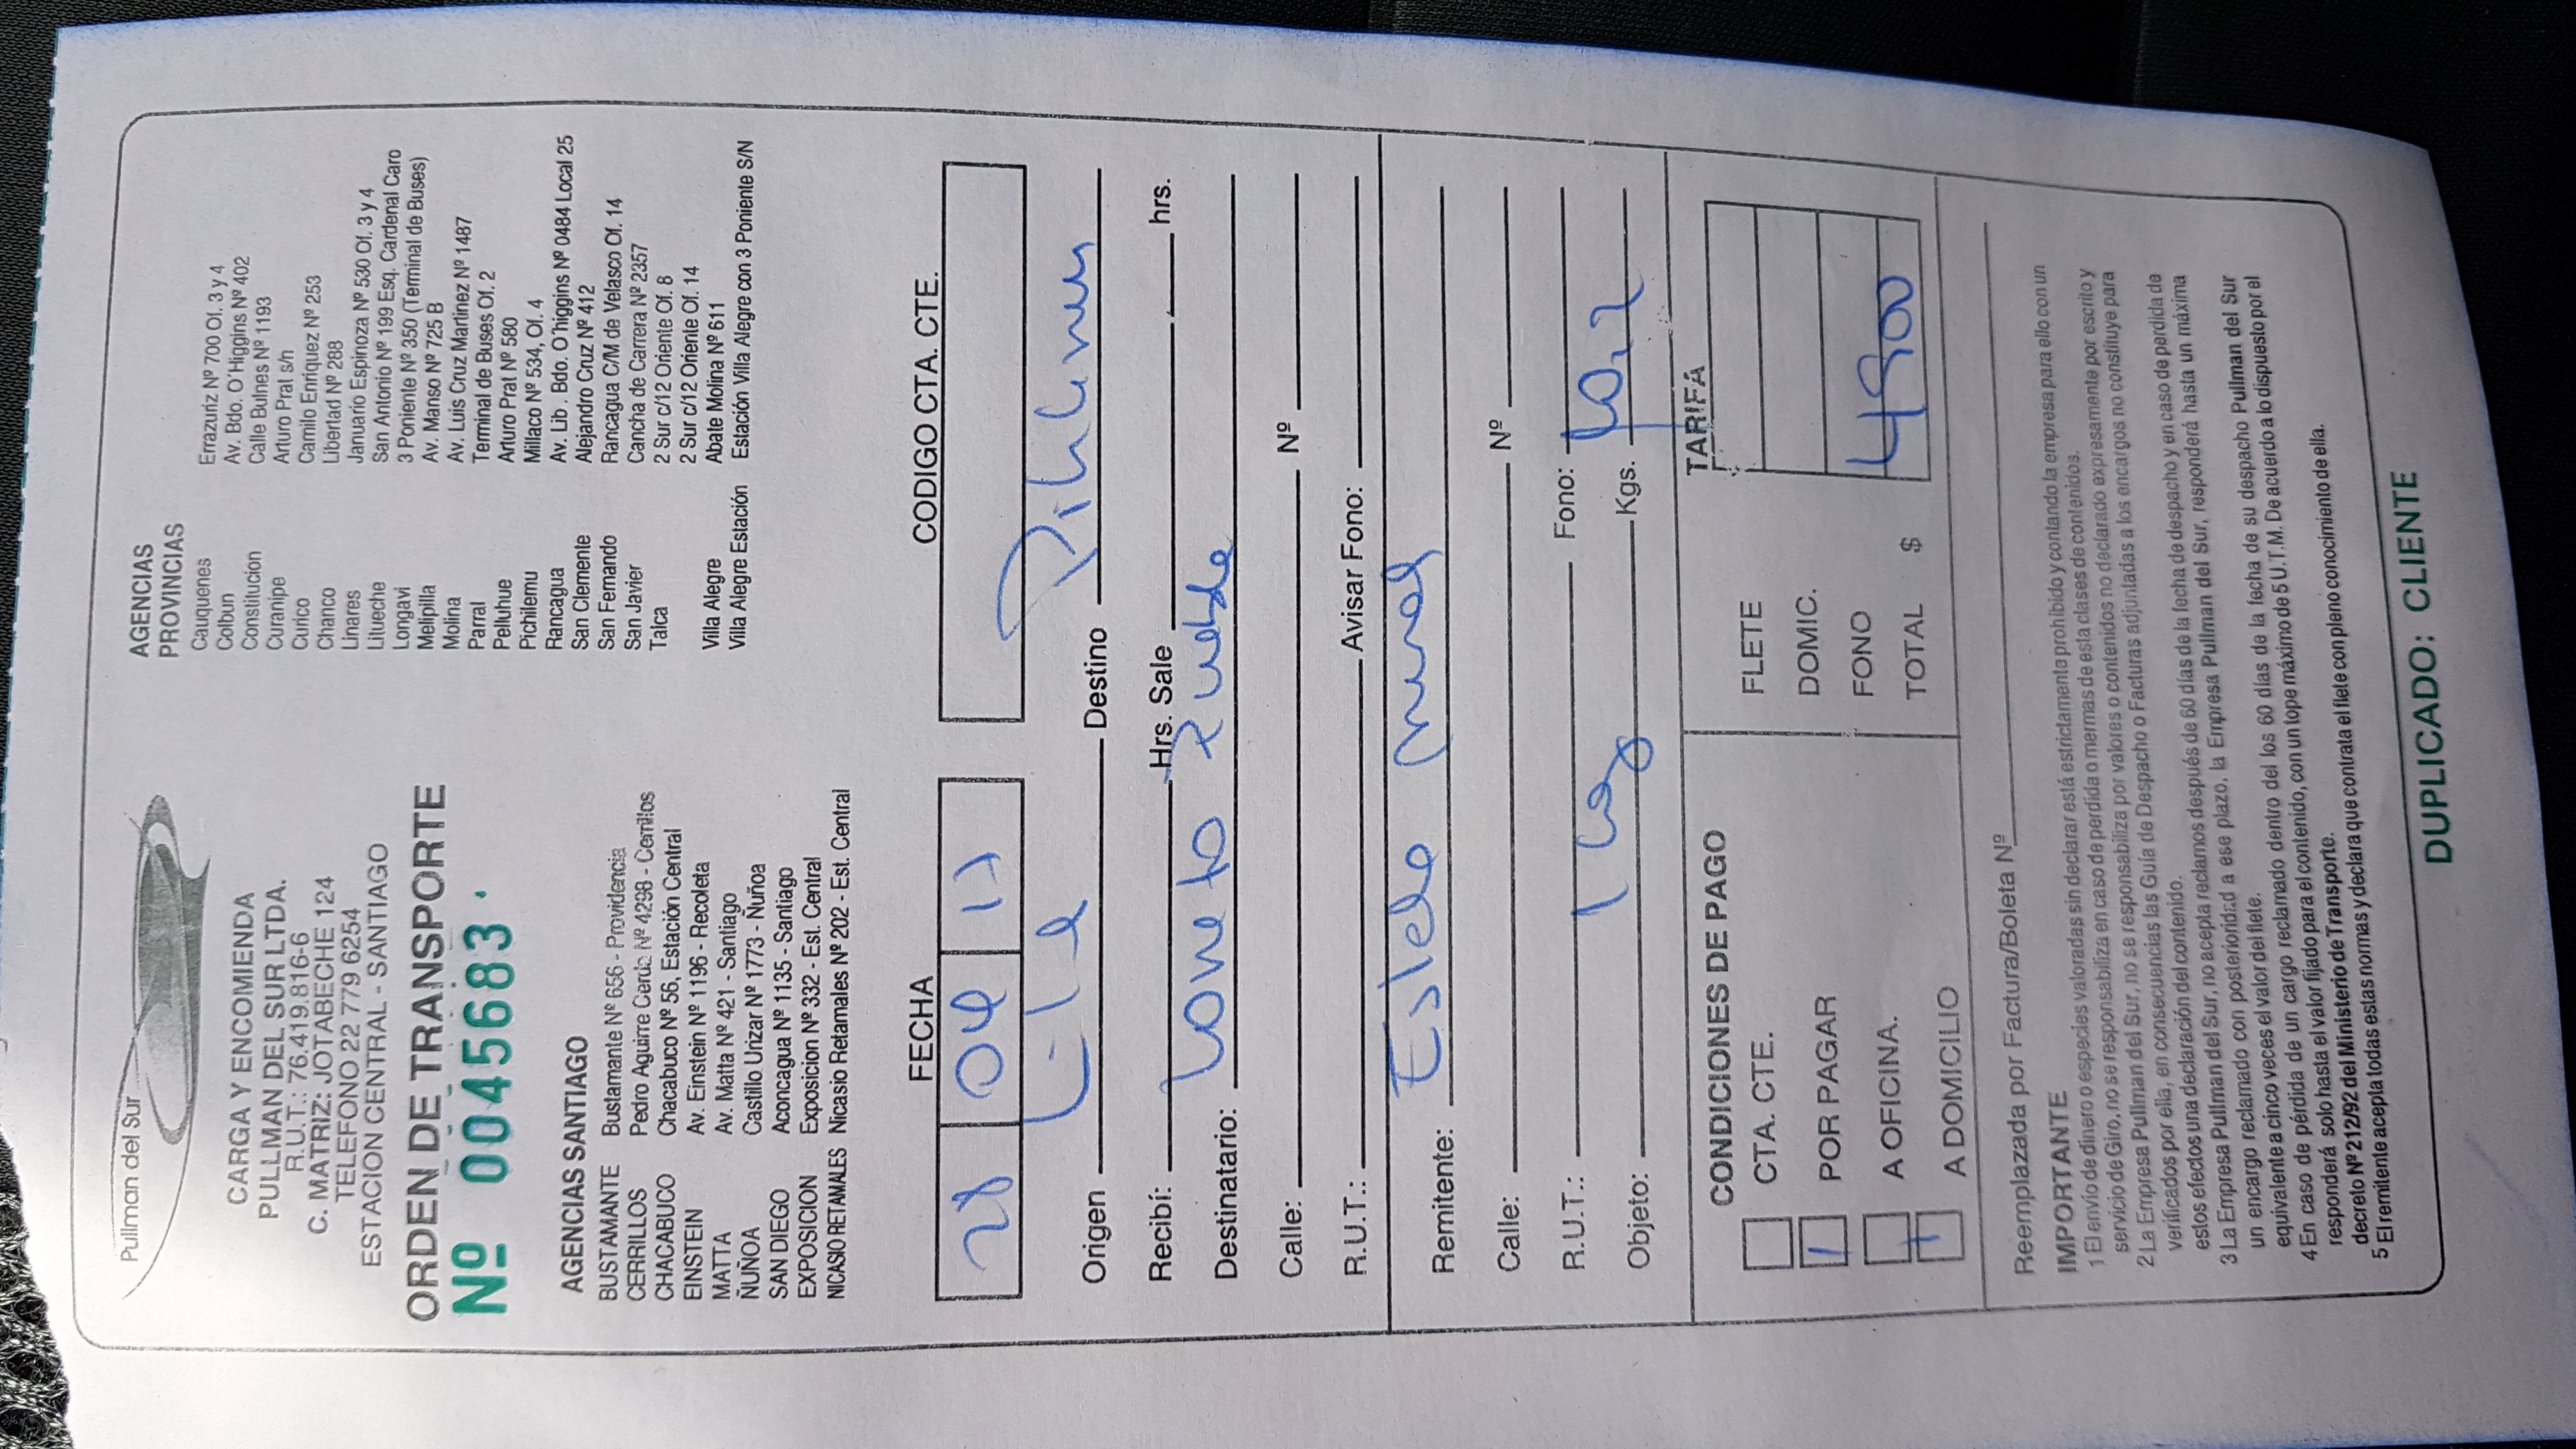 Pullman del Sur
CARGA Y ENCOMIENDA
PULLMAN DEL SUR LTDA.
R.U.T.: 76.419.816-6
C. MATRIZ: JOTABECHE 124
TELEFONO 22 779 6254
ESTACION CENTRAL - SANTIAGO
ORDEN DE TRANSPORTE
Nº 0045683
AGENCIAS SANTIAGO
BUSTAMANTE Bustamante Nº 656 - Providencia
CERRILLOS Pedro Aguirre Cerda Nº 4298 - Cerrillos
CHACABUCO Chacabuco Nº 56, Estación Central
EINSTEIN Av. Einstein Nº 1196 - Recoleta
MATTA Av. Matta Nº 421 - Santiago
ÑUÑOA Castillo Urízar Nº 1773 - Ñuñoa
SAN DIEGO Aconcagua Nº 1135 - Santiago
EXPOSICION Exposicion Nº 332 - Est. Central
NICASIO RETAMALES Nicasio Retamales Nº 202 - Est. Central
AGENCIAS
PROVINCIAS
Cauquenes Errazuriz Nº 700 Of. 3 y 4
Colbun Av. Bdo. O'Higgins Nº 402
Constitucion Calle Bulnes Nº 1193
Curanipe Arturo Prat s/n
Curico Camilo Enríquez Nº 253
Chanco Libertad Nº 288
Linares Januario Espinoza Nº 530 Of. 3 y 4
Litueche San Antonio Nº 199 Esq. Cardenal Caro
Longavi 3 Poniente Nº 350 (Terminal de Buses)
Melipilla Av. Manso Nº 725 B
Molina Av. Luis Cruz Martinez Nº 1487
Parral Terminal de Buses Of. 2
Pelluhue Arturo Prat Nº 580
Pichilemu Millaco Nº 534, Of. 4
Rancagua Av. Lib . Bdo. O'higgins Nº 0484 Local 25
San Clemente Alejandro Cruz Nº 412
San Fernando Rancagua C/M de Velasco Of. 14
San Javier Cancha de Carrera Nº 2357
Talca 2 Sur c/12 Oriente Of. 8
2 Sur c/12 Oriente Of. 14
Villa Alegre Abate Molina Nº 611
Villa Alegre Estación Estación Villa Alegre con 3 Poniente S/N
FECHA CODIGO CTA. CTE.
28 04
Origen Destino Pichilemu
Recibí: Hrs. Sale / hrs.
Destinatario: Loreto
Calle: Nº
R.U.T.: Avisar Fono:
Remitente:
Calle: Nº
R.U.T.: Fono:
Objeto: 1 Kgs.
CONDICIONES DE PAGO TARIFA
CTA. CTE. FLETE
POR PAGAR DOMIC.
A OFICINA. FONO 4900
A DOMICILIO TOTAL $
Reemplazada por Factura/Boleta Nº
IMPORTANTE
1 El envío de dinero o especies valoradas sin declarar está estrictamente prohibido y contando la empresa para ello con un
servicio de Giro, no se responsabiliza en caso de perdida o mermas de esta clases de contenidos.
2 La Empresa Pullman del Sur, no se responsabiliza por valores o contenidos no declarado expresamente por escrito y
verificados por ella, en consecuencias las Guía de Despacho o Facturas adjuntadas a los encargos no constituye para
estos efectos una declaración del contenido.
3 La Empresa Pullman del Sur, no acepta reclamos después de 60 días de la fecha de despacho y en caso de perdida de
un encargo reclamado con posterioridad a ese plazo, la Empresa Pullman del Sur, responderá hasta un máxima
equivalente a cinco veces el valor del flete.
4 En caso de pérdida de un cargo reclamado dentro del los 60 días de la fecha de su despacho Pullman del Sur
responderá solo hasta el valor fijado para el contenido, con un tope máximo de 5 U.T.M. De acuerdo a lo dispuesto por el
decreto Nº 212/92 del Ministerio de Transporte.
5 El remitente acepta todas estas normas y declara que contrata el flete con pleno conocimiento de ella.
DUPLICADO: CLIENTE